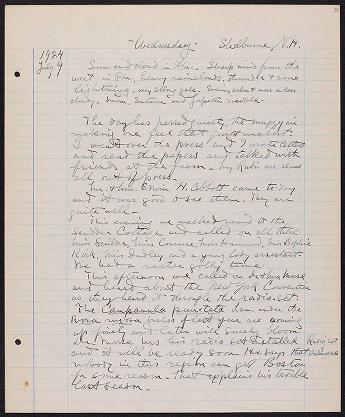 1924
July 9
Wednesday. Shelburne, N.H.
Sun and cloud in A.M. Sharp wind from the
west in P.M., heavy rain clouds, thunder & some
lightning, very strong gale. Evening calm &
cloudy. Moon, Saturn and Jupiter visible.
The day has passed quietly, the muggy air
making one feel that
I went over the press and I wrote letters
and read the papers and talked with
friends at the farm. My
all out of press.
Mr. & Mrs. Edwin H. Abbott came to day
and it was good to see them. They are
quite well.
This evening we walked round to the
Scudder Cottage and called on all there
Miss Scudder, Miss Converse, Miss Hammond, Miss Sophie
Kirk, Miss Dudley and a young lady assistant.
We had a rather jolly time.
This afternoon we called on
and heard about the New York Convention
as they heard it through the radio set.
The Campanula punctata
Rosa rubra bulbs first year are coming
up finely and later will surely bloom.
has his radio set installed Radio set
and it will be ready soon. He says that
nobody in this region can get Boston
for some reason. That explains his trouble
last season.